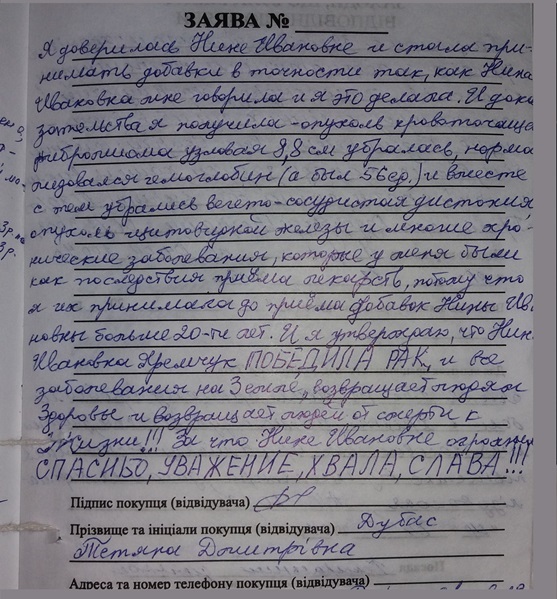 ЗАЯВА № 
Я доверилась Нине Ивановне и стала при-
нимать добавки в точности так, как Нина
Ивановна мне говорила и я это делала. И дока
зательства я получила - опухоль кровоточаща
фибромиома узловая 8,8 см убралась, норма
лизовался гемоглобин (а был 56 ед.) и вместе
с тем убрались вегето-сосудистая дистония
опухоль щитовидной железы и многие хро-
нические заболевания, которые у меня были
как последствия приёма лекарств, потому что
я их принимала до приёма добавок Нины Ива
новны больше 20-ти лет. И я утверждаю, что Нин
Ивановна Яремчук ПОБЕДИЛА РАК, и все
заболевания на Земле, возвращает людям
Здоровье и возвращает людей от смерти к
Жизни!!! За что Нине Ивановне огромн
СПАСИБО, УВАЖЕНИЕ, ХВАЛА, СЛАВА!!!
Підпис покупця (відвідувача)
Прізвище та ініціали покупця (відвідувача) Дубас
Тетяна Дмитрівна
Адреса та номер телефону покупця (відвідувача)